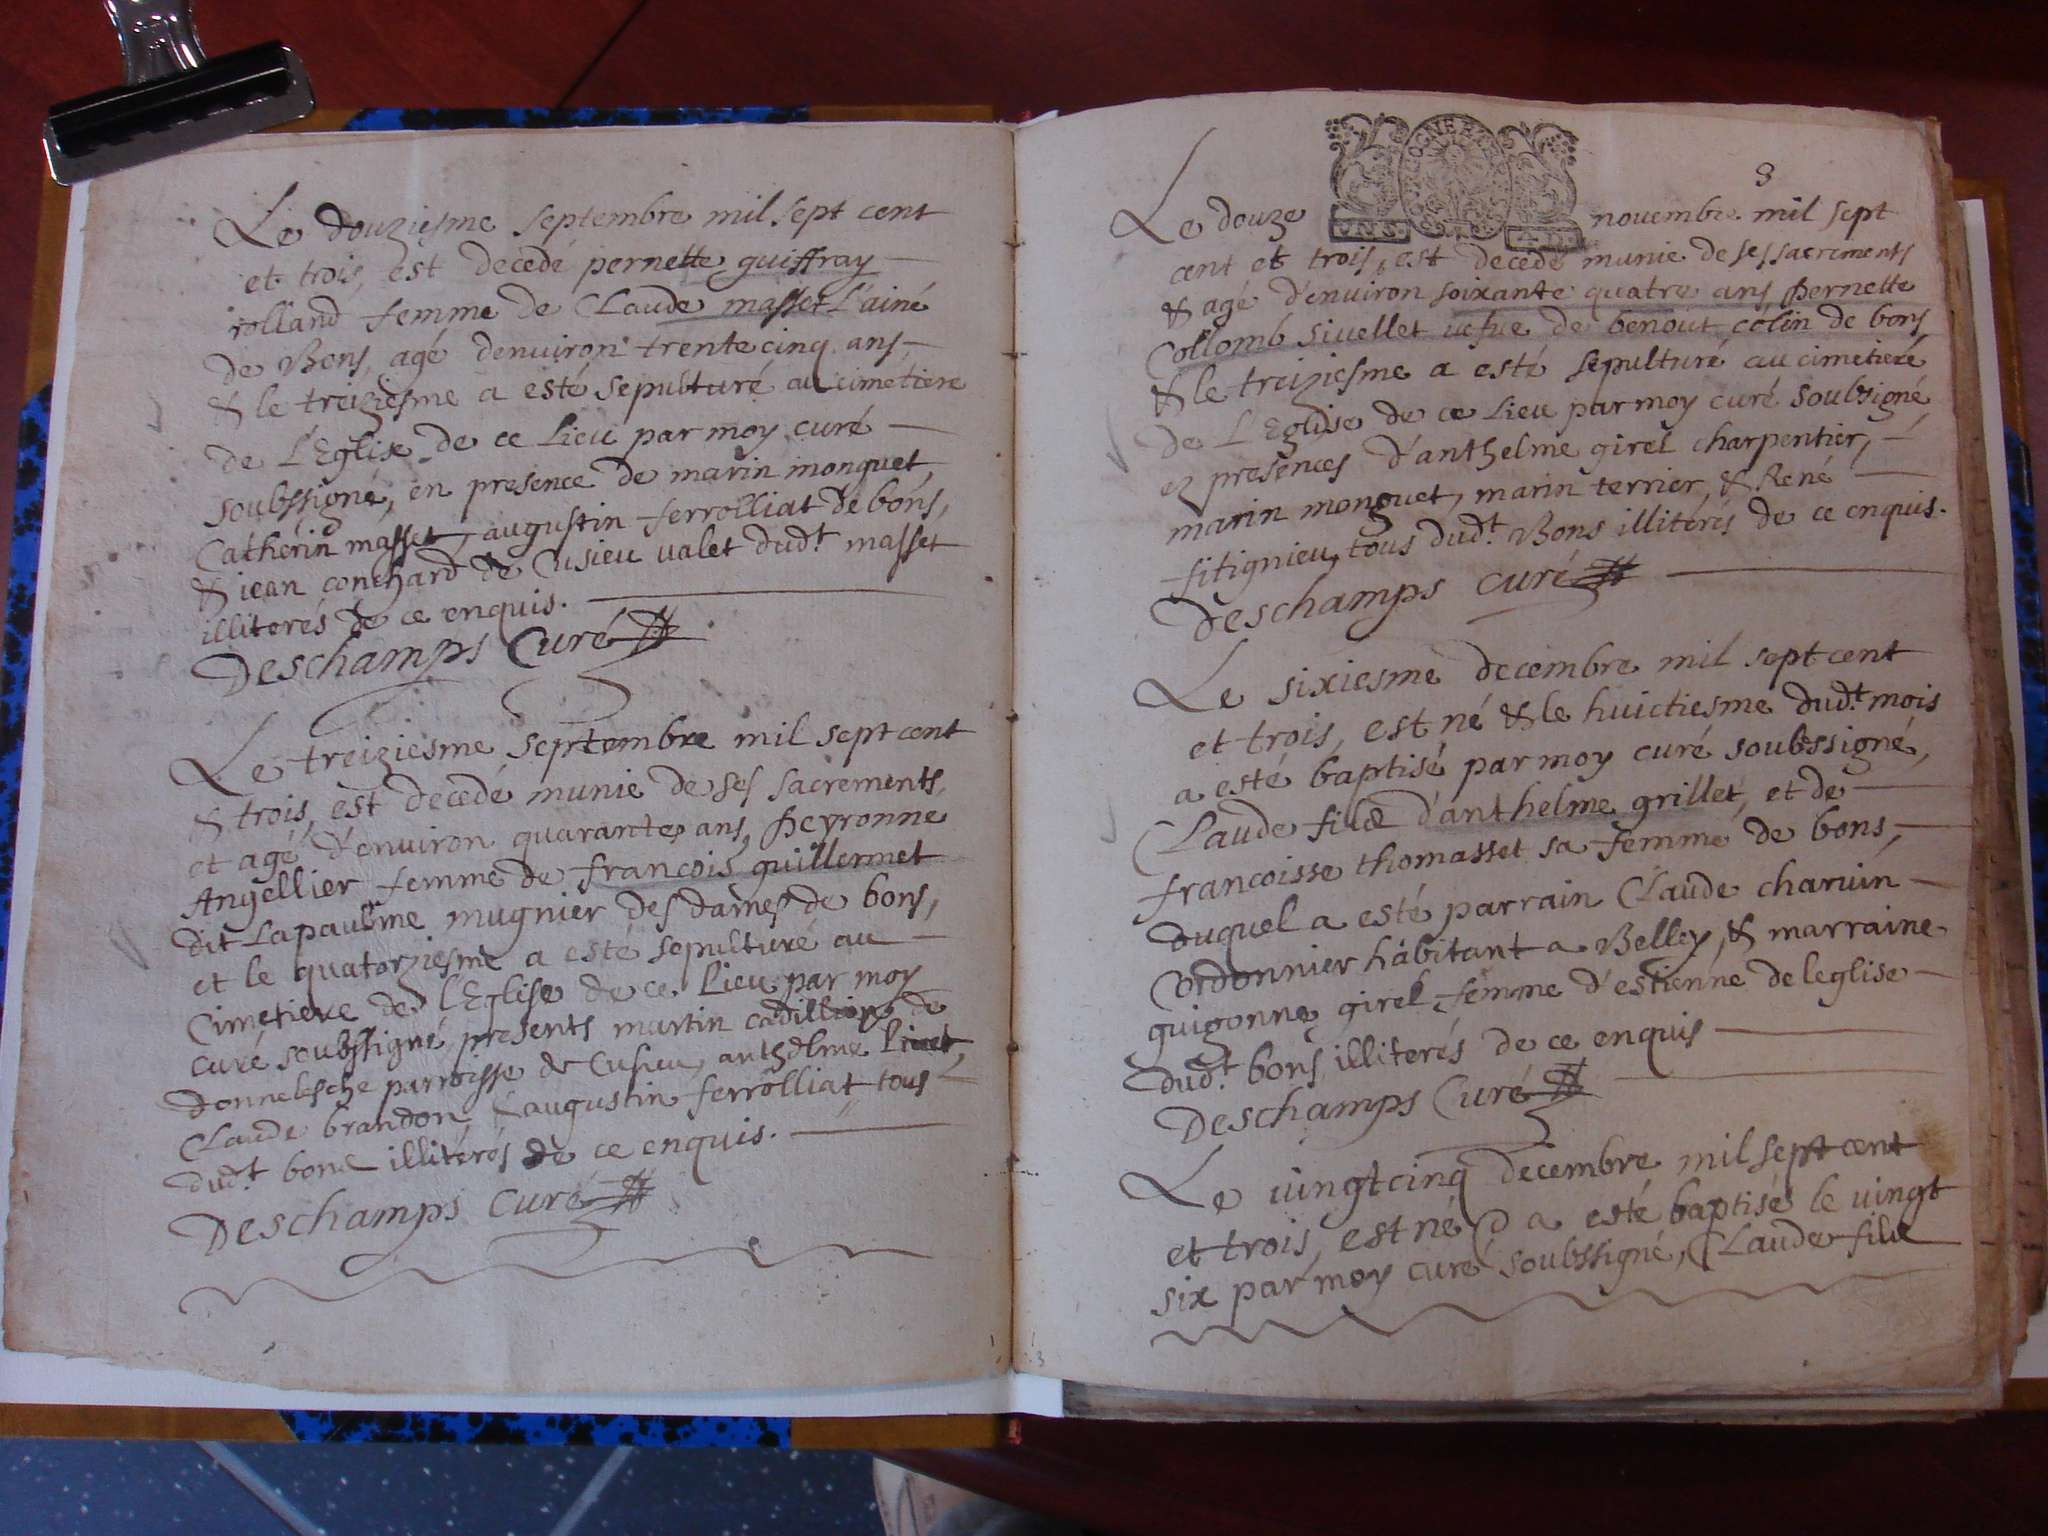 Le douziesme septembre mil sept cent
et trois, est decedé pernette guiffray
rolland femme de Claude masset l'ainé
de Bons, agé denviron trente cinq ans,
& le treiziesme a esté sepulturé au cimetiere
de l'Eglise de ce lieu par moy curé
soubssigné, en presence de marin monguet,
Catherin masset, augustin ferrolliat de bons,
& iean conchard de Cusieu valet dud.t masset
illiterés de ce enquis.
Deschamps Curé
Le treiziesme septembre mil sept cent
& trois, est decedé munie de ses sacrements,
et agé d'enuiron quarante ans, Peyronne
Angellier femme de francois guillermet
dit Lapaulme mugnier des dames de bons,
et le quatorziesme a esté sepulturé au
Cimetiere de l'Eglise de ce lieu par moy
curé soubssigné presents martin cadillion de
parroisse de Cusieu, anthelme
Claude brandon, & augustin ferrolliat tous
dud.t bons illiterés de ce enquis.
Deschamps Curé
3
Le douze novembre mil sept
cent et trois, est decedé munie de ses sacrements
& agé d'enuiron soixante quatre ans, Pernette
Collomb siuellet vefue de benoit colin de bons
& le treiziesme a esté sepulturé au cimetiere
de l'Eglise de ce lieu par moy curé soubsigné
ez presences d'anthelme girel charpentier,
marin monguet, marin terrier, & René
fitignieu, tous dud.t Bons illiterés de ce enquis.
Deschamps Curé
Le sixiesme decembre mil sept cent
et trois, est né & le huictiesme dud.t mois
a esté baptisé par moy curé soubssigné,
Claude filie d'anthelme grillet, et de
francoisse thomasset sa femme de bons,
duquel a esté parrain Claude charuin
Cordonnier habitant a Belley, & marraine
guigonne girel femme d'estienne de leglise
dud.t bons illiterés de ce enquis
Deschamps Curé
Le vingt cinq decembre mil sept cent
et trois, est né & a esté baptisé le vingt
six par moy curé soubssigné, Claude filie